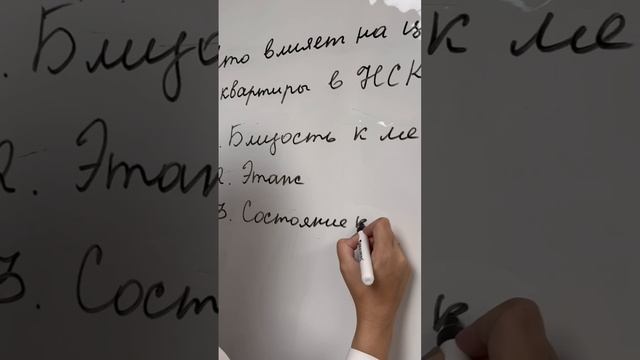 что влияет на ц
квартиры в НСК
1. Близость к ме
2. Этаж
3. Состояние к